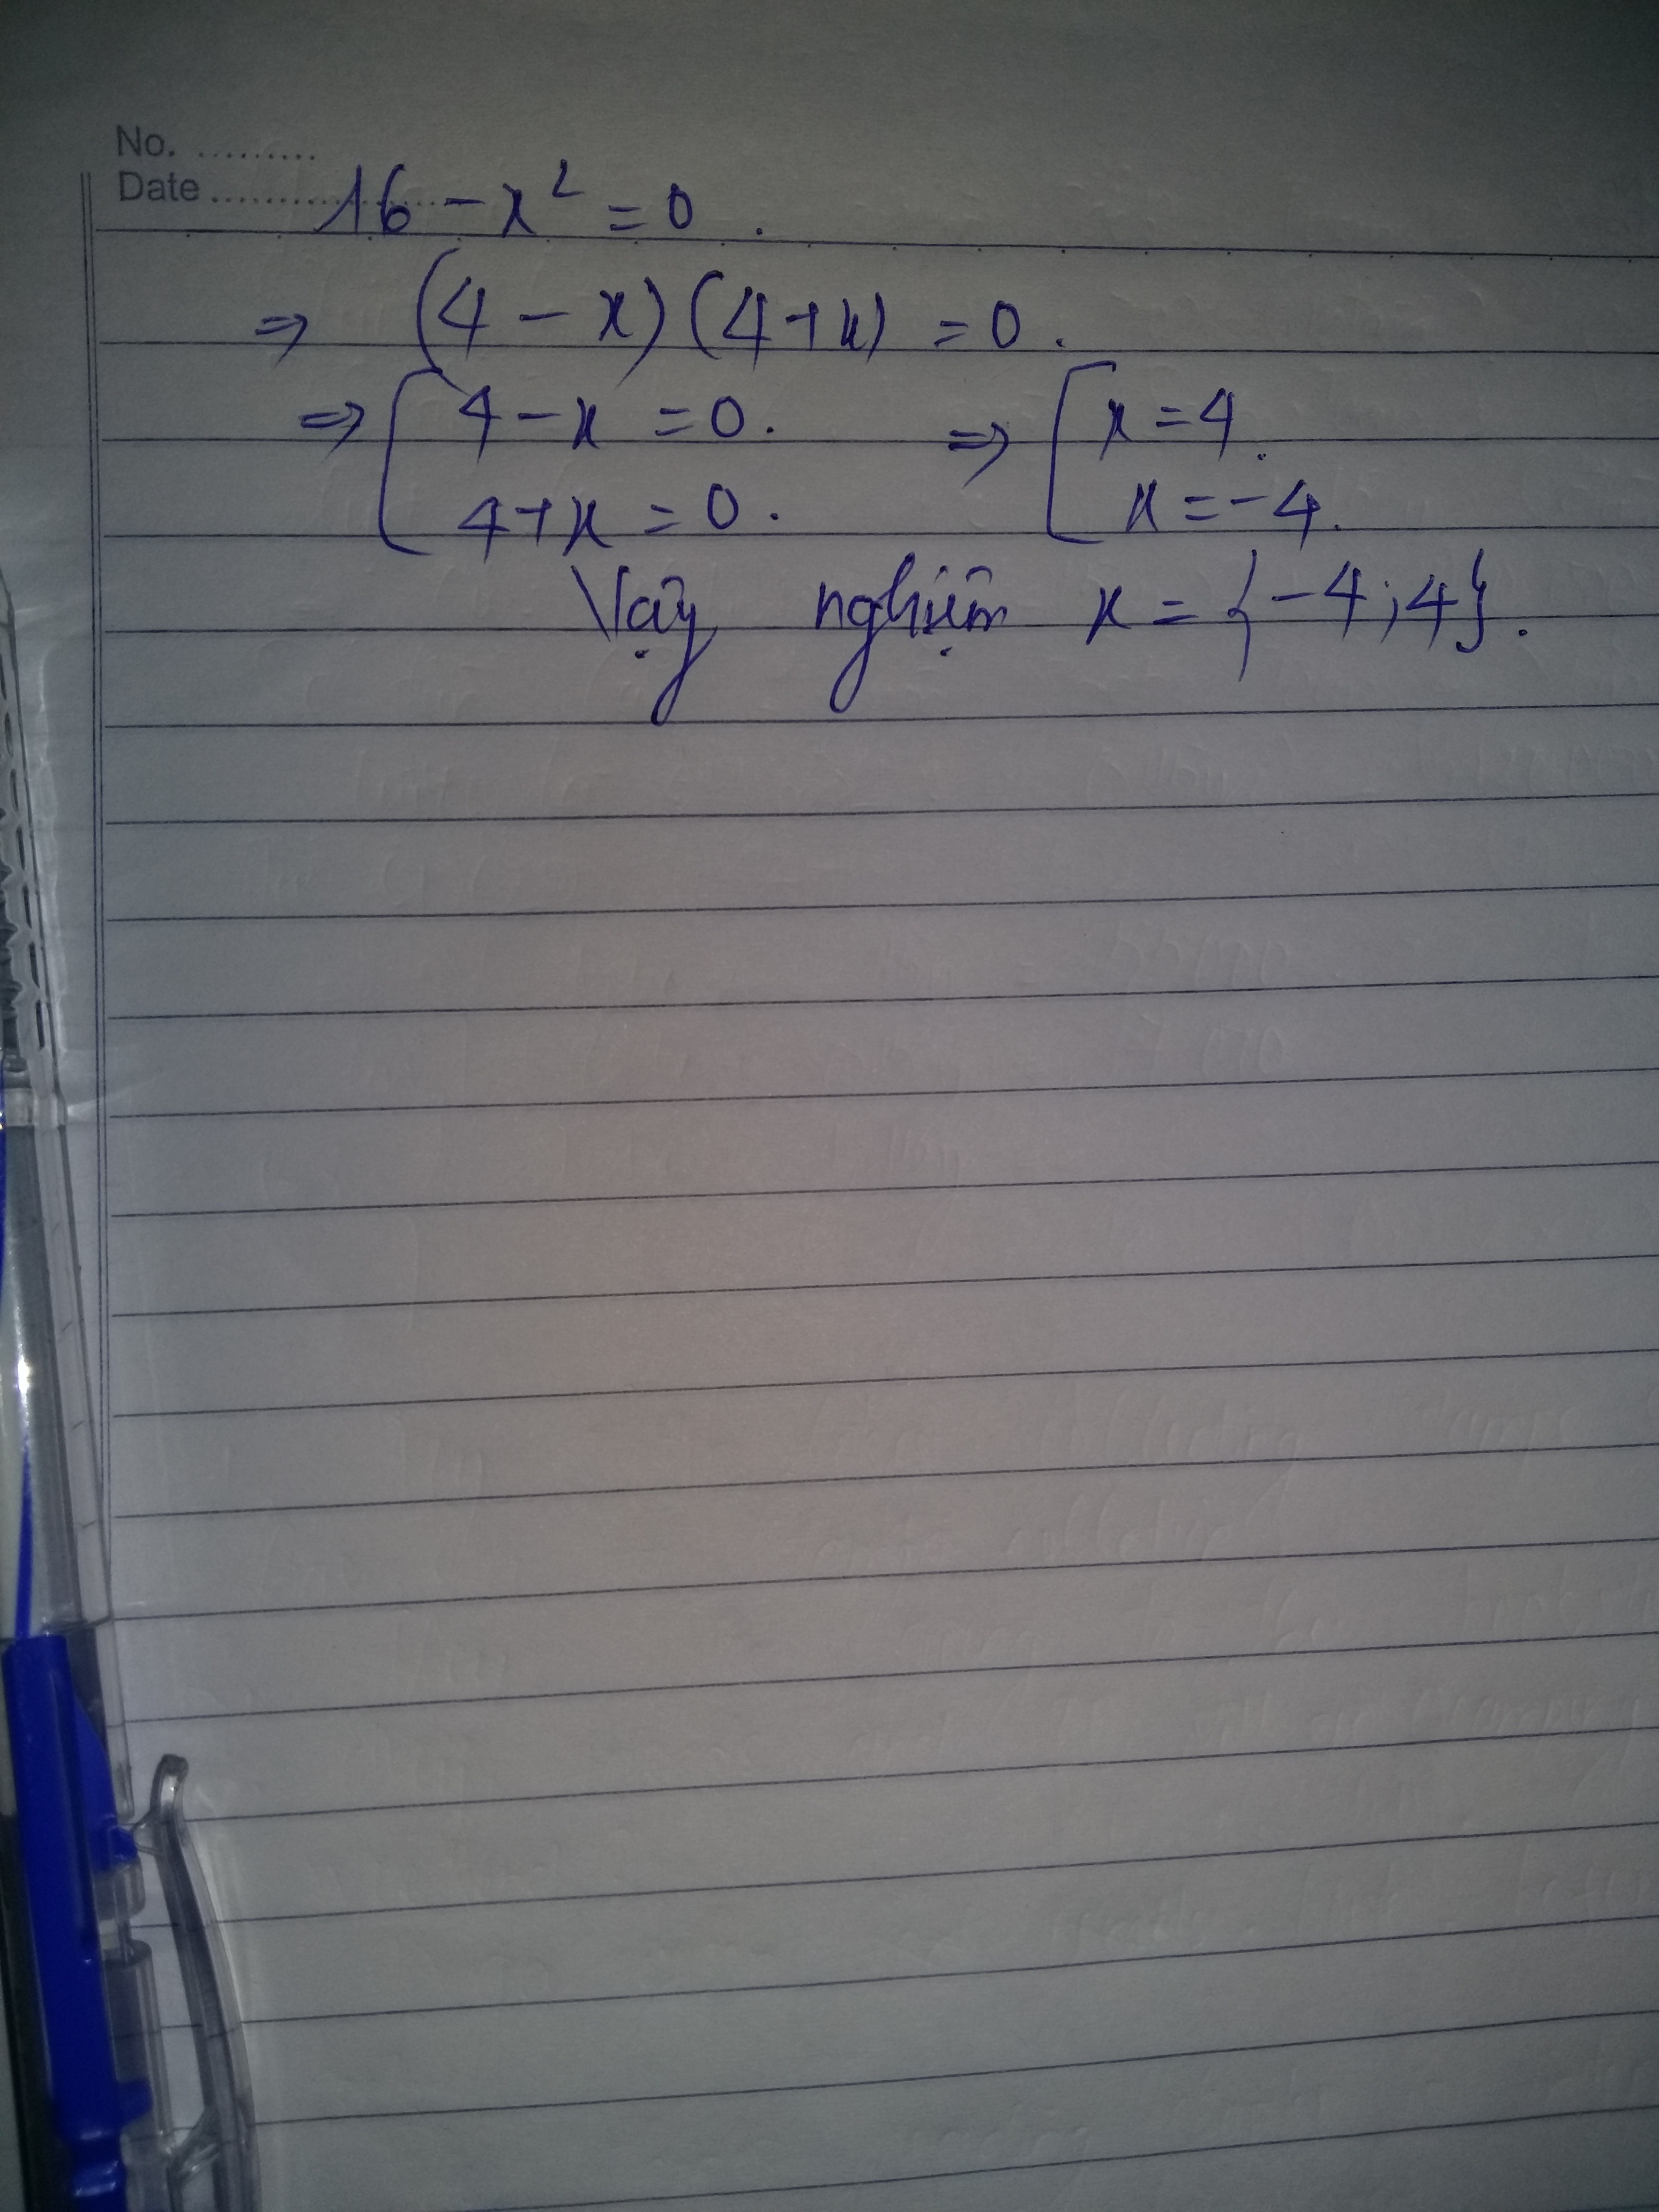 No. .........
Date ................
16 - x² = 0 .
=> (4 - x) (4+x) = 0 .
=> [ 4 - x = 0 . => [ x = 4 .
4+x = 0 . x = -4 .
Vậy nghiệm x = {-4 ; 4} .